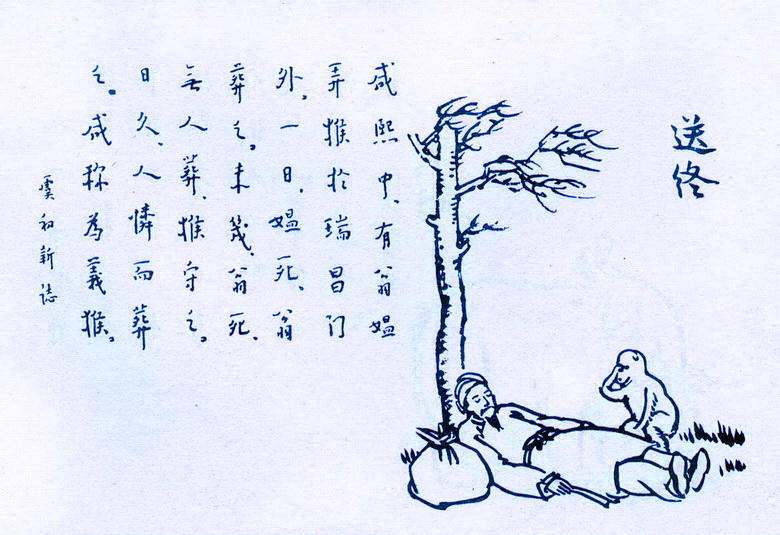 送終
咸熙中、有翁媼
弄猴於瑞昌门
外。一日、媼死、翁
葬之。未幾、翁死、
無人葬、猴守之。
日久、人憐而葬
之。咸称為義猴。
虞初新誌